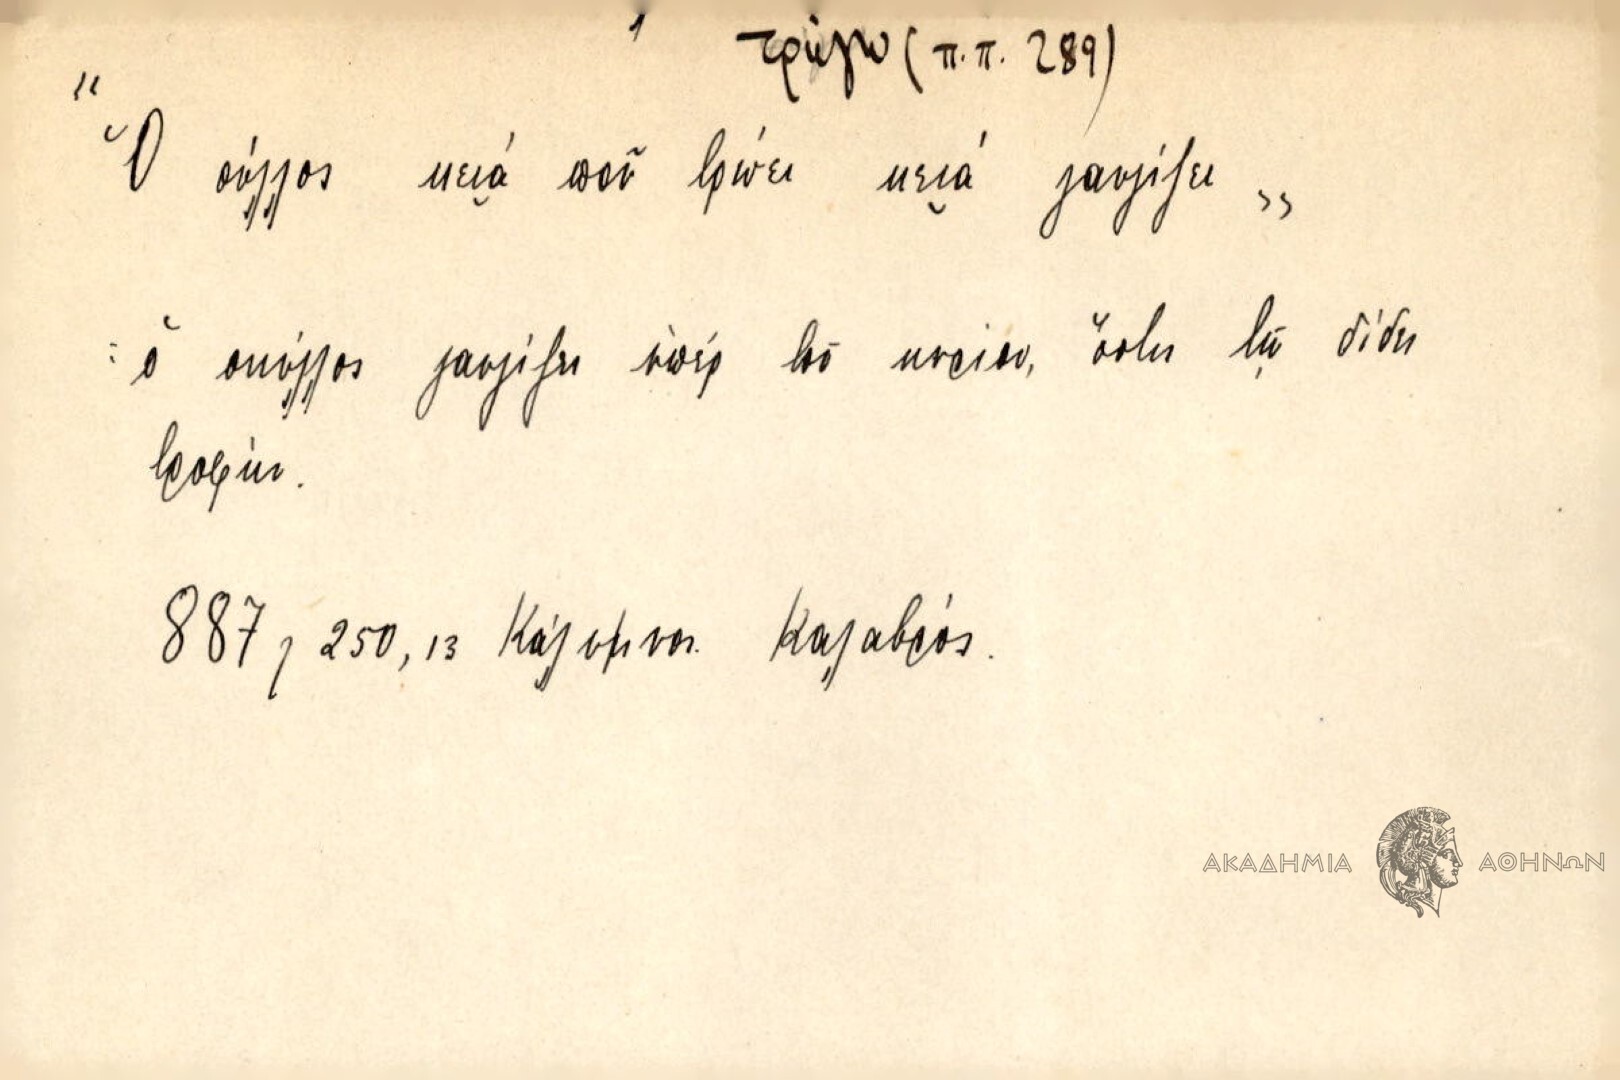 τρώγω (π.π. 289)
"Ὁ σύλλος κειά ποῦ τρώει κειά γαυγίζει„
: ὁ σκύλλος γαυγίζει ὑπέρ τοῦ κυρίου, ὅστις τῷ δίδει
τροφήν.
887, 250, 13 Κάλυμνος. Καλαβρός.
ΑΚΑΔΗΜΙΑ ΑΘΗΝΩΝ